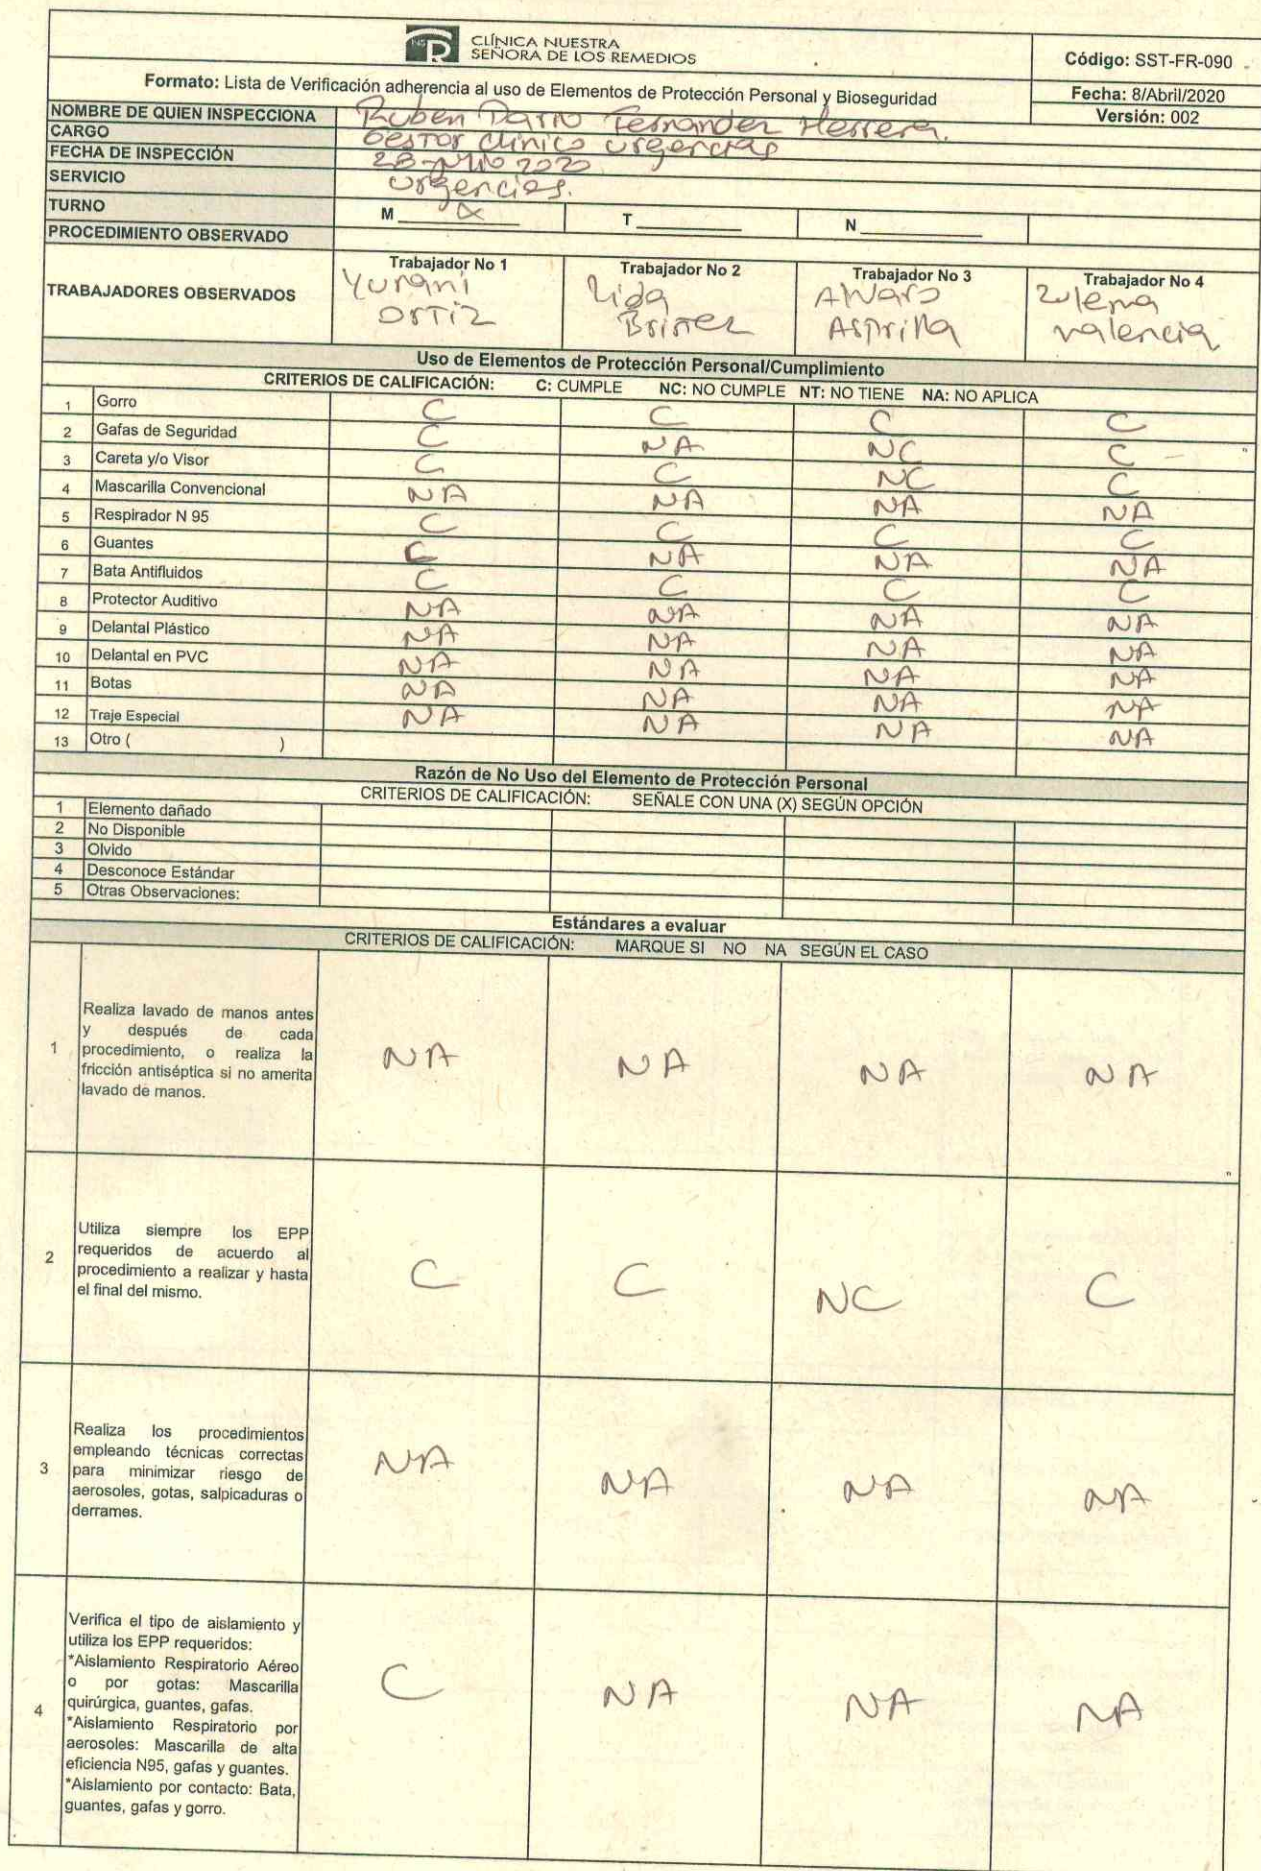 CLÍNICA NUESTRA
SEÑORA DE LOS REMEDIOS
Código: SST-FR-090
Formato: Lista de Verificación adherencia al uso de Elementos de Protección Personal y Bioseguridad
Fecha: 8/Abril/2020
Versión: 002
NOMBRE DE QUIEN INSPECCIONA Ruben Dario Fernandez Herrera.
CARGO Gestor clinico urgencias
FECHA DE INSPECCIÓN 28 Julio 2020
SERVICIO urgencias.
TURNO M x T N
PROCEDIMIENTO OBSERVADO
TRABAJADORES OBSERVADOS
Trabajador No 1 Trabajador No 2 Trabajador No 3 Trabajador No 4
Yurani Lida Alvaro Zulema
Ortiz Asprilla valencia
Uso de Elementos de Protección Personal/Cumplimiento
CRITERIOS DE CALIFICACIÓN: C: CUMPLE NC: NO CUMPLE NT: NO TIENE NA: NO APLICA
1 Gorro C C C C
2 Gafas de Seguridad C NA NC C
3 Careta y/o Visor C C NC C
4 Mascarilla Convencional NA NA NA NA
5 Respirador N 95 C C C C
6 Guantes C NA NA NA
7 Bata Antifluidos C C C C
8 Protector Auditivo NA NA NA NA
9 Delantal Plástico NA NA NA NA
10 Delantal en PVC NA NA NA NA
11 Botas NA NA NA NA
12 Traje Especial NA NA NA NA
13 Otro ( )
Razón de No Uso del Elemento de Protección Personal
CRITERIOS DE CALIFICACIÓN: SEÑALE CON UNA (X) SEGÚN OPCIÓN
1 Elemento dañado
2 No Disponible
3 Olvido
4 Desconoce Estándar
5 Otras Observaciones:
Estándares a evaluar
CRITERIOS DE CALIFICACIÓN: MARQUE SI NO NA SEGÚN EL CASO
1
Realiza lavado de manos antes
y después de cada
procedimiento, o realiza la
fricción antiséptica si no amerita
lavado de manos.
NA NA NA NA
2
Utiliza siempre los EPP
requeridos de acuerdo al
procedimiento a realizar y hasta
el final del mismo.
C C NC C
3
Realiza los procedimientos
empleando técnicas correctas
para minimizar riesgo de
aerosoles, gotas, salpicaduras o
derrames.
NA NA NA NA
4
Verifica el tipo de aislamiento y
utiliza los EPP requeridos:
*Aislamiento Respiratorio Aéreo
o por gotas: Mascarilla
quirúrgica, guantes, gafas.
*Aislamiento Respiratorio por
aerosoles: Mascarilla de alta
eficiencia N95, gafas y guantes.
*Aislamiento por contacto: Bata,
guantes, gafas y gorro.
C NA NA NA